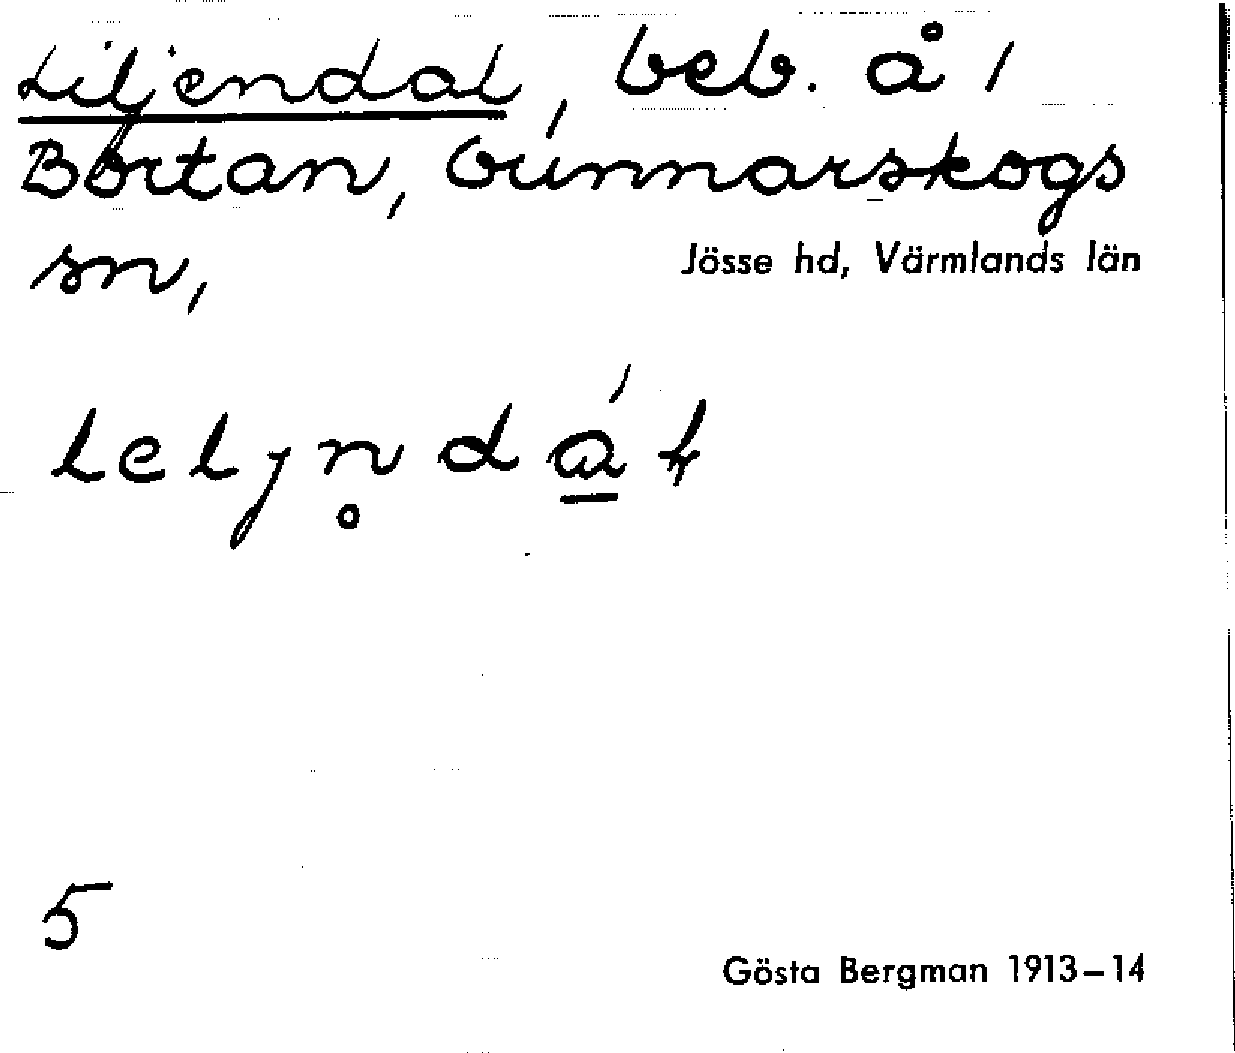 Liljendal, beb. å
Bortan, Gunnarskogs
sn,
Jösse hd, Värmlands län
leljn̥dά̲ɫ
5
Gösta Bergman 1913–14